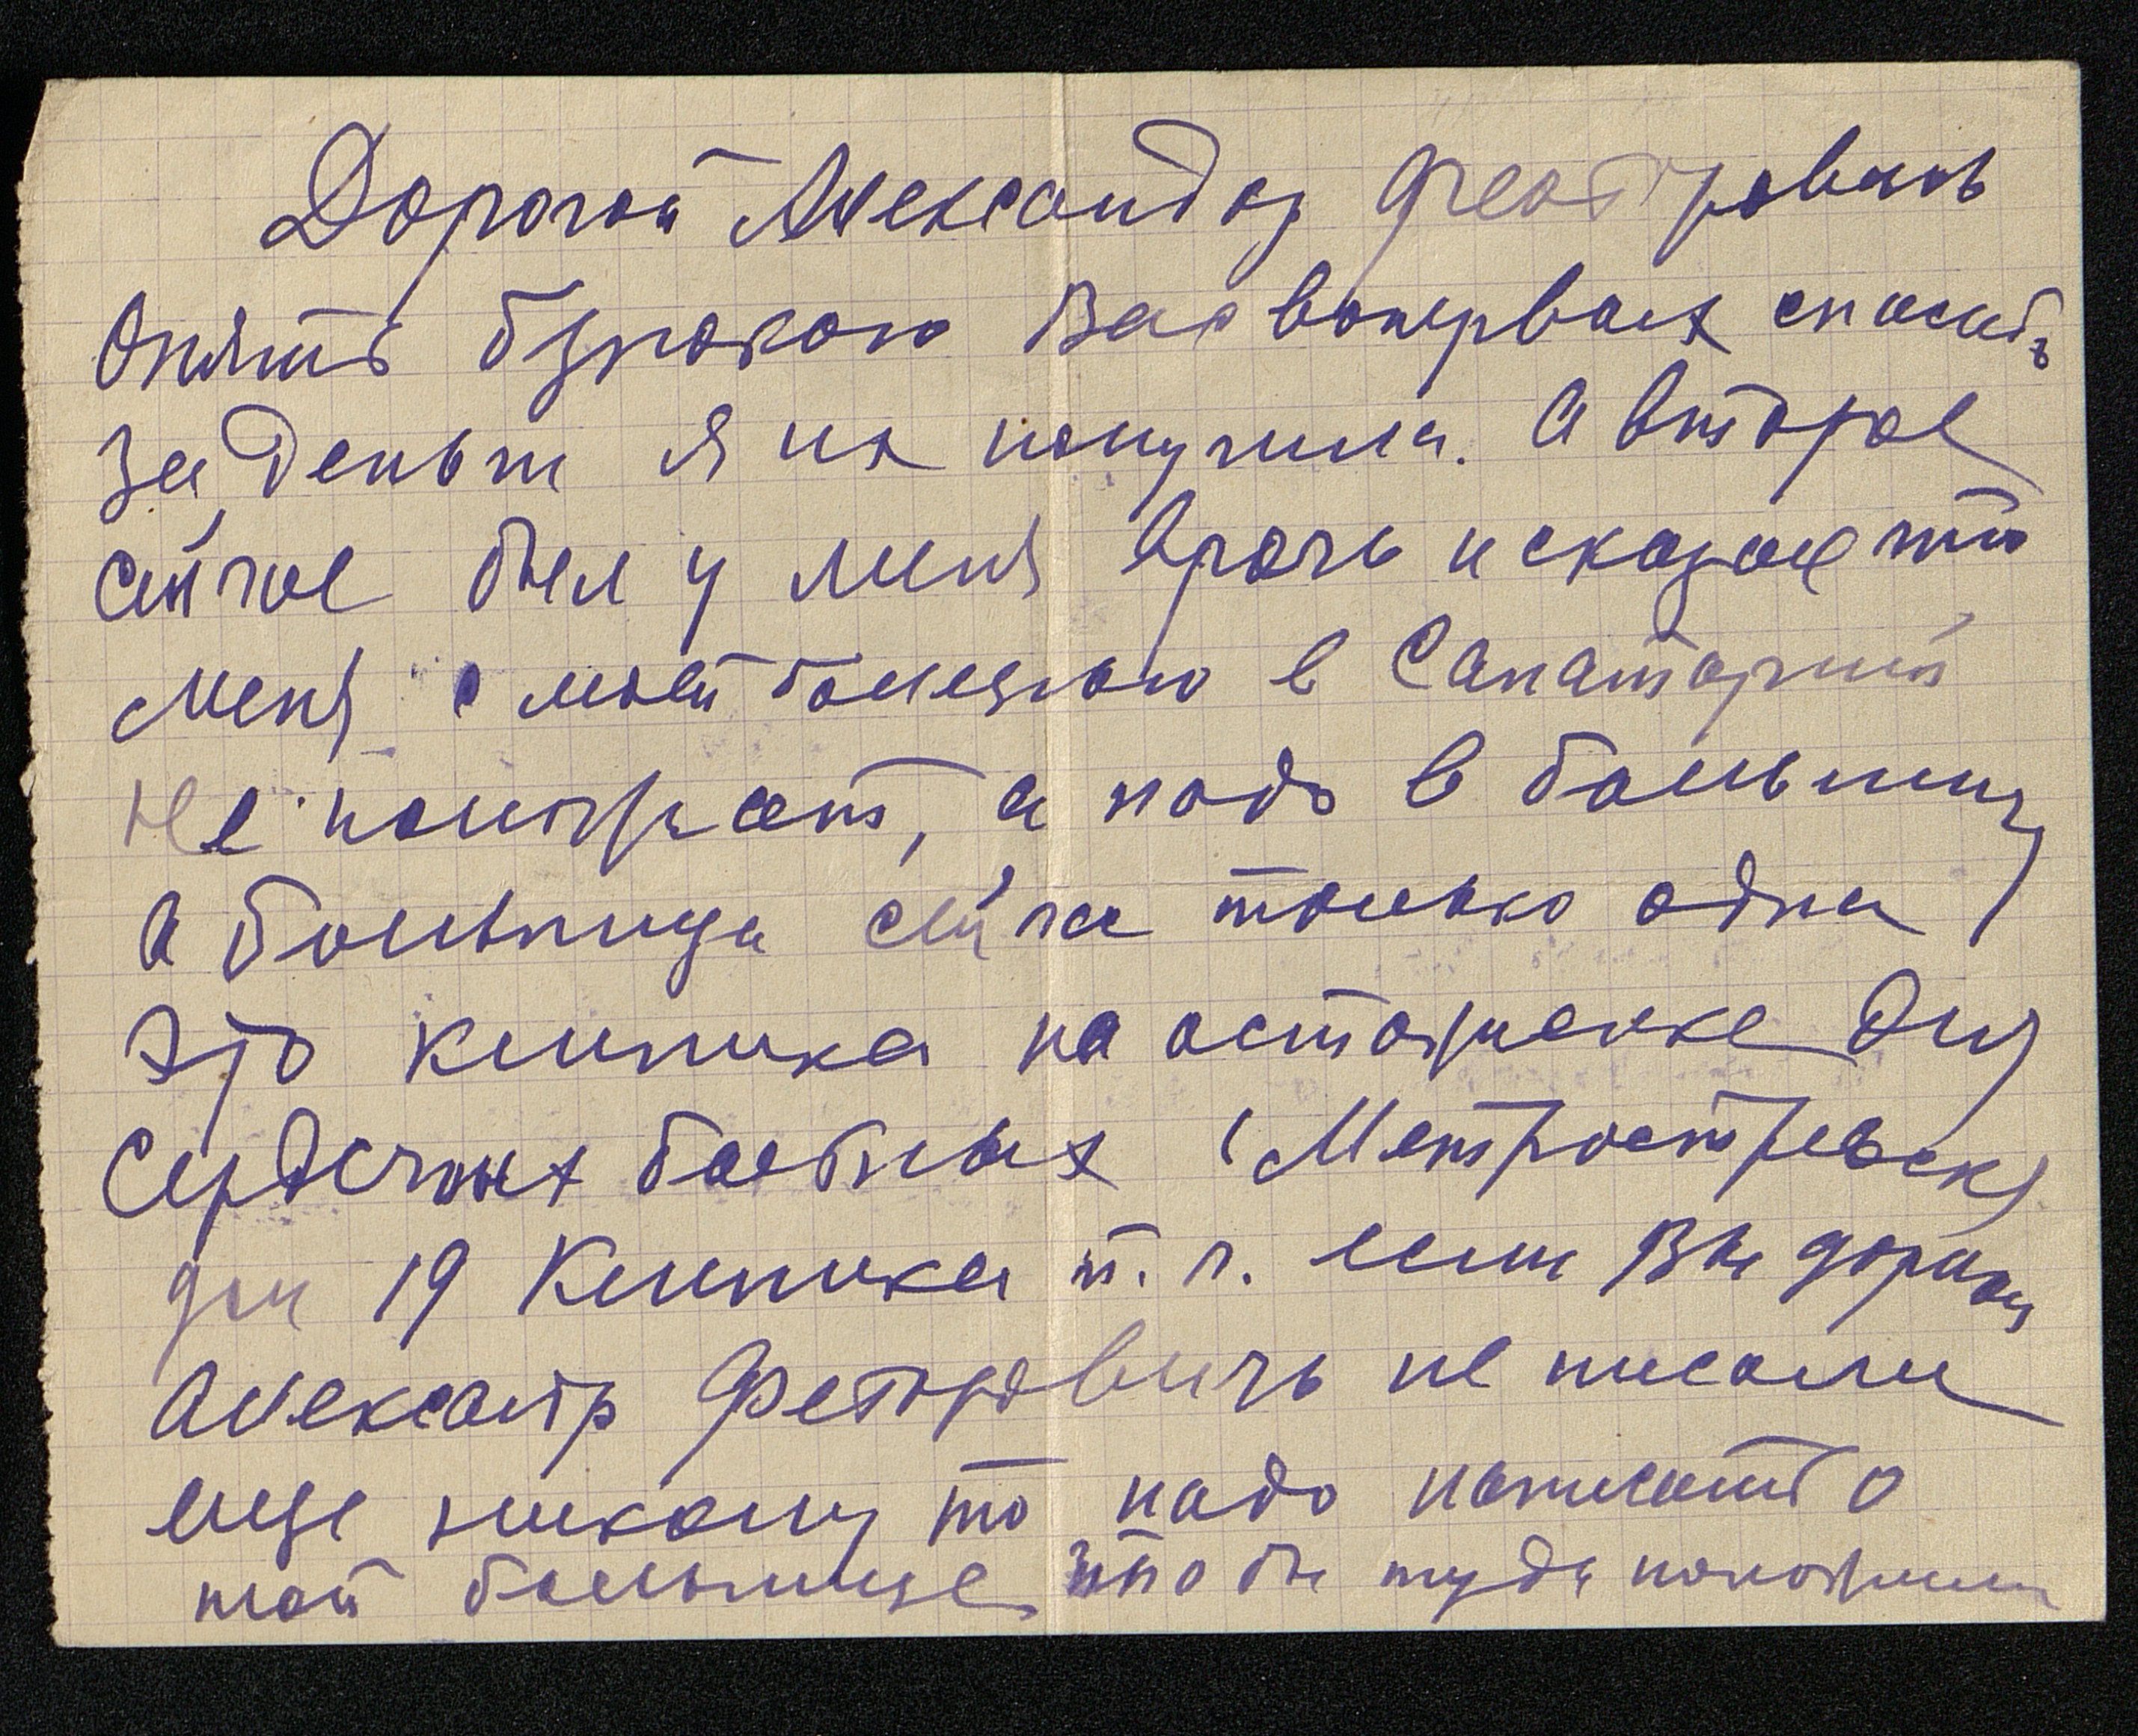 Дорогой Александр Феодровичь
Опять безпокою Вас вопервых спасибо
за деньги я их получила. А второе
сейчас был у меня врачь и сказал что
меня с моей болезнью в Санаторий
не положат, а надо в больницу
а больница сейчас только одна
это клиника на остоженке для
Сердечных больных (Метростревская
дом 19 Клиника т. ч. если Вы дорогой
Александр Федоровичь не писали
еще никому то надо написать о
той больнице чтобы туда положили